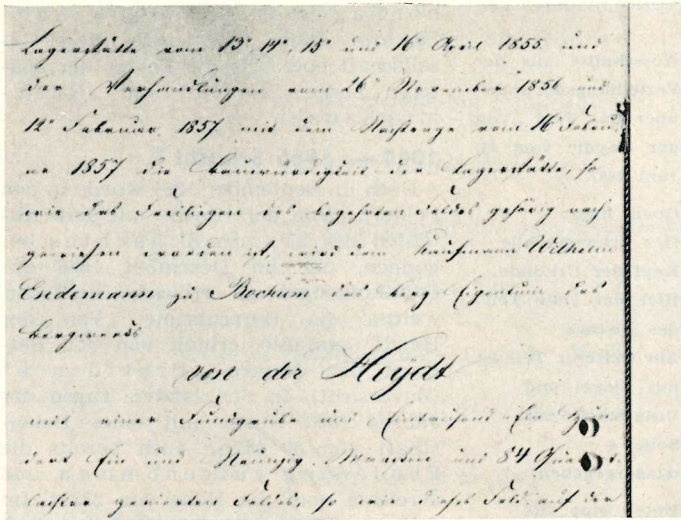 Lagerstätte vom 13', 14', 15' und 16' April 1855 und
der Verhandlungen vom 26' November 1856 und
12' Februar 1857 mit dem Nachtrage vom 16' Febru-
ar 1857 die Bauwürdigkeit der Lagerstätte, so
wie das Freiliegen des begehrten Feldes gehörig nach
gewiesen worden ist, wird dem Kaufmann Wilhelm
Endemann zu Bochum das Berg Eigenthum des
Bergwerks
von der Heydt
mit einer Fundgrube und Eintausend Ein
dert Ein und Neunzig Maaßen und 84 Quadrat
lachter gevierten Feldes, so wie dieses Feld auf der